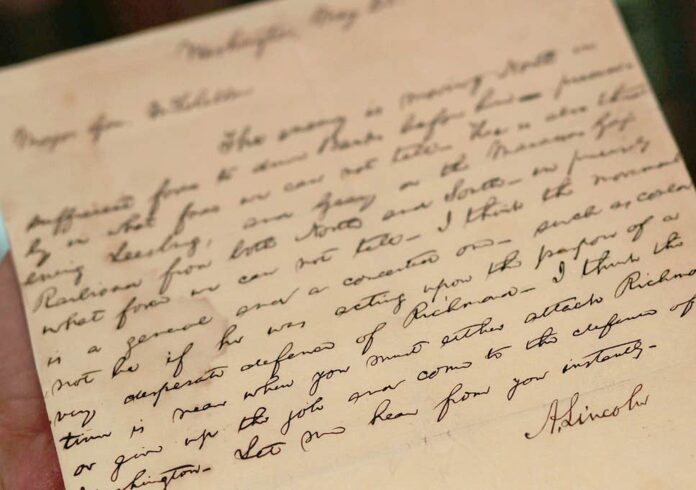 Washington, May 25
Major Gen. McClellan
The enemy is moving North in
sufficient force to drive Banks before him — precise-
ly in what force we can not tell. He is also threat
ening Leesburg, and Geary on the Manassas Gap
Railroad from both North and South — in precisely
what force we can not tell — I think the movement
is a general and a concerted one — such as could
not be if he was acting upon the purpose of a
very desperate defence of Richmond — I think the
time is near when you must either attack Richmo
or give up the job and come to the defence of
Washington — Let me hear from you instantly —
A. Lincoln